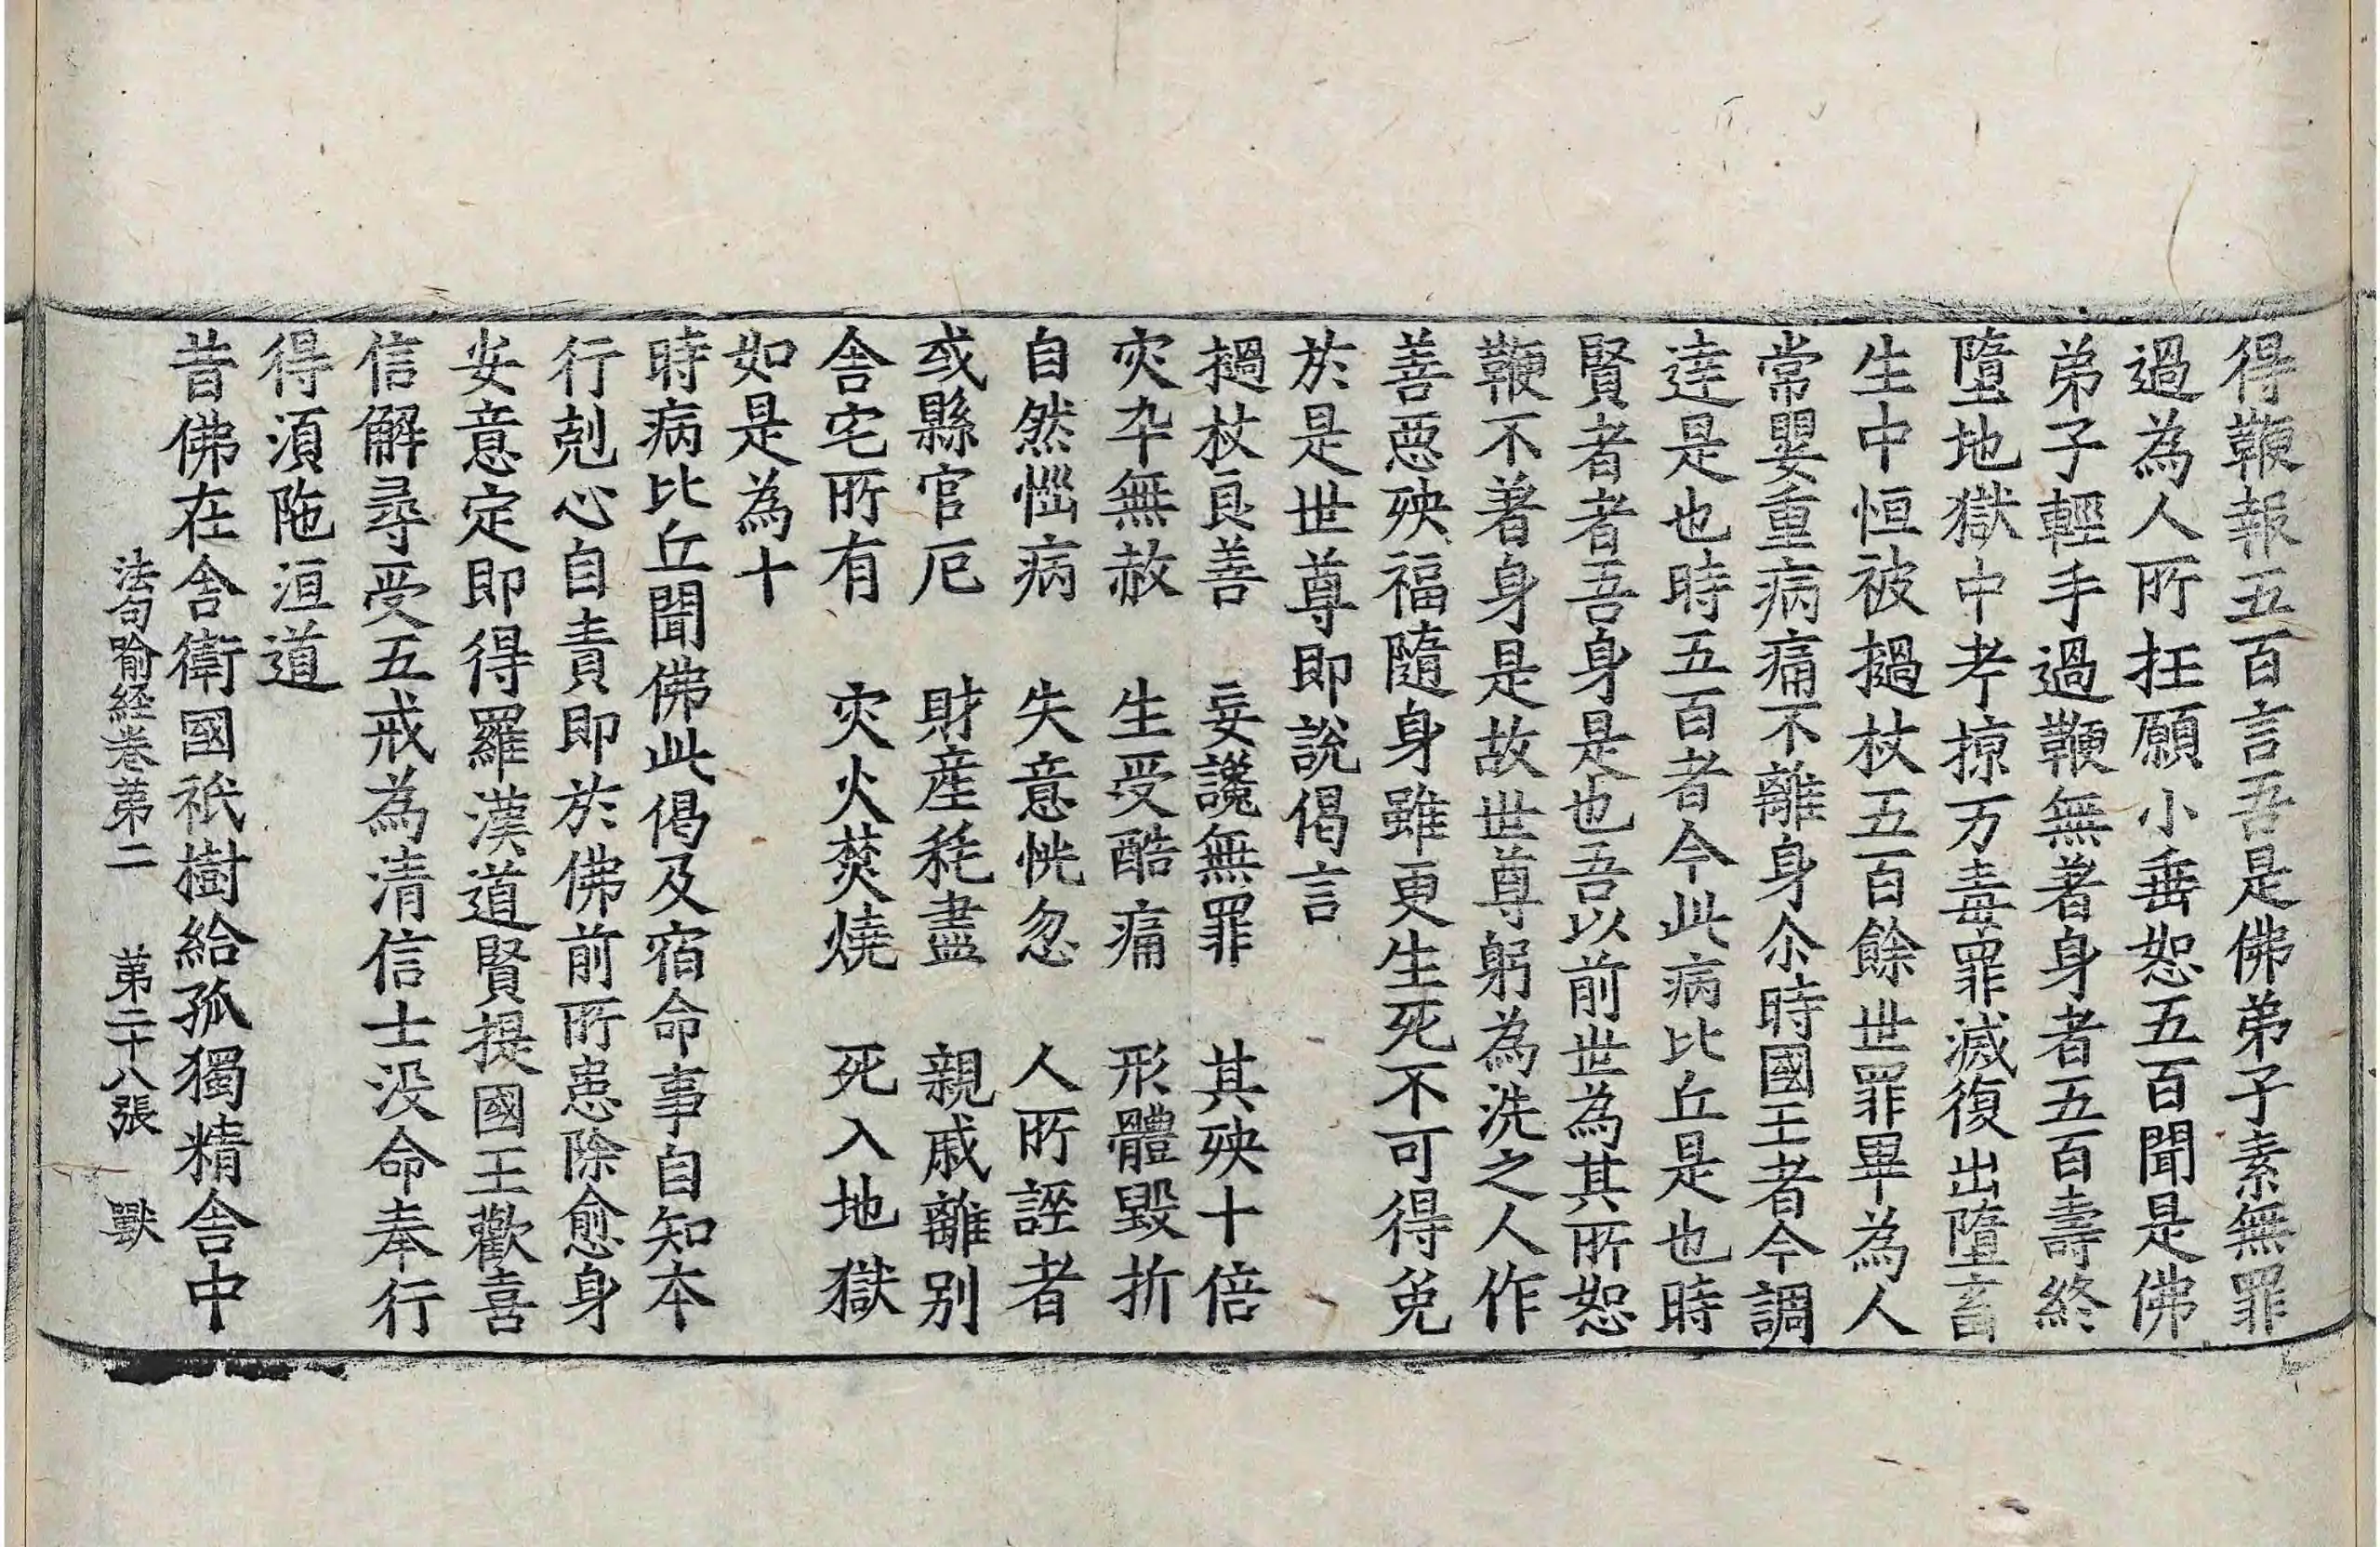 得鞭報五百言吾是佛弟子素無罪
過為人所抂願小垂恕五百聞是佛
弟子輕手過鞭無著身者五百壽終
墮地獄中考掠万毒罪滅復出墮畜
生中恒被撾杖五百餘世罪畢為人
常嬰重病痛不離身尒時國王者今調
達是也時五百者今此病比丘是也時
賢者者吾身是也吾以前世為其所恕
鞭不著身是故世尊躬為洗之人作
善惡殃福隨身雖更生死不可得免
於是世尊即說偈言
撾杖良善　妄讒無罪　其殃十倍
灾卒無赦　生受酷痛　形體毀折
自然惱病　失意恍忽　人所誣者
或縣官厄　財産秏盡　親戚離別
舍宅所有　灾火焚燒　死入地獄
如是為十
時病比丘聞佛此偈及宿命事自知本
行剋心自責即於佛前所患除愈身
安意定即得羅漢道賢提國王歡喜
信解尋受五戒為清信士没命奉行
得須陁洹道
昔佛在舍衛國祇樹給孤獨精舍中
法句喻経卷第二　第二十八張　獸